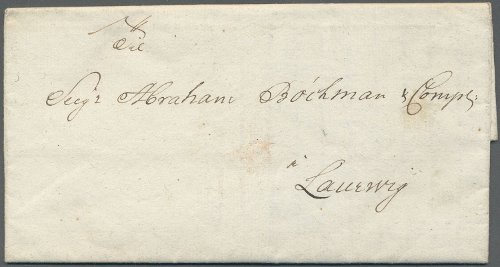 Til
Sigr Abraham Böckman & Comp:
a
Laurwig